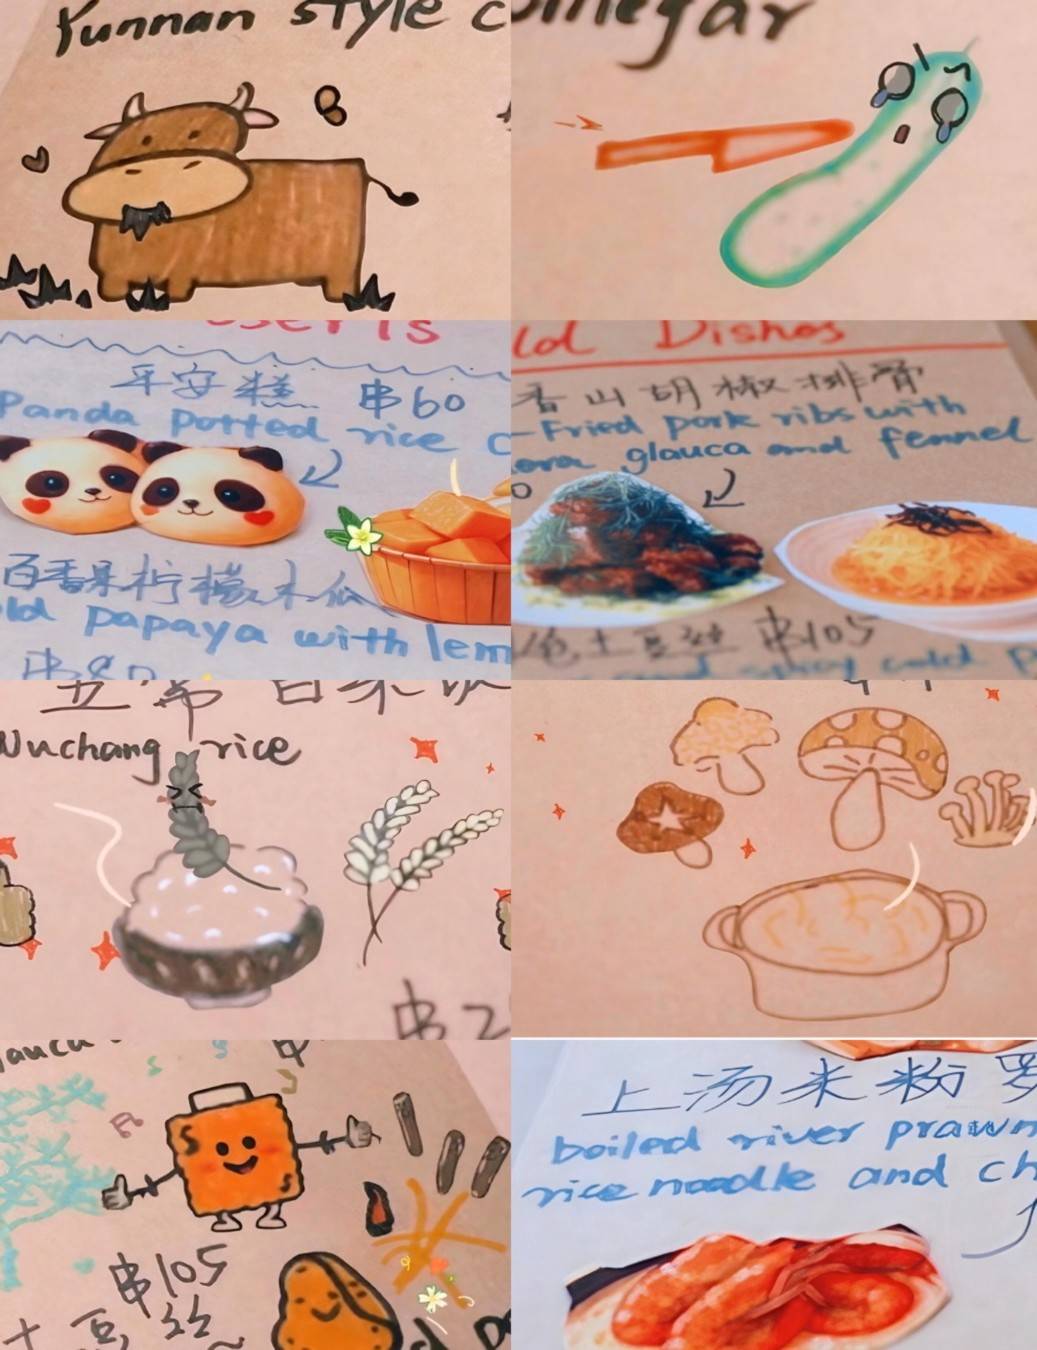 Yunnan style c
inegar
serts
平安糕 串60
Panda potted rice c
百香果柠檬木瓜
ld papaya with lem
串80
ld Dishes
香山胡椒排骨
-Fried pork ribs with
ora glauca and fennel
土豆丝 串105
and spicy cold p
五常百米饭
Wuchang rice
串2
glauca
串
串105
土豆丝
上汤米粉罗
boiled river prawn
rice noodle and ch